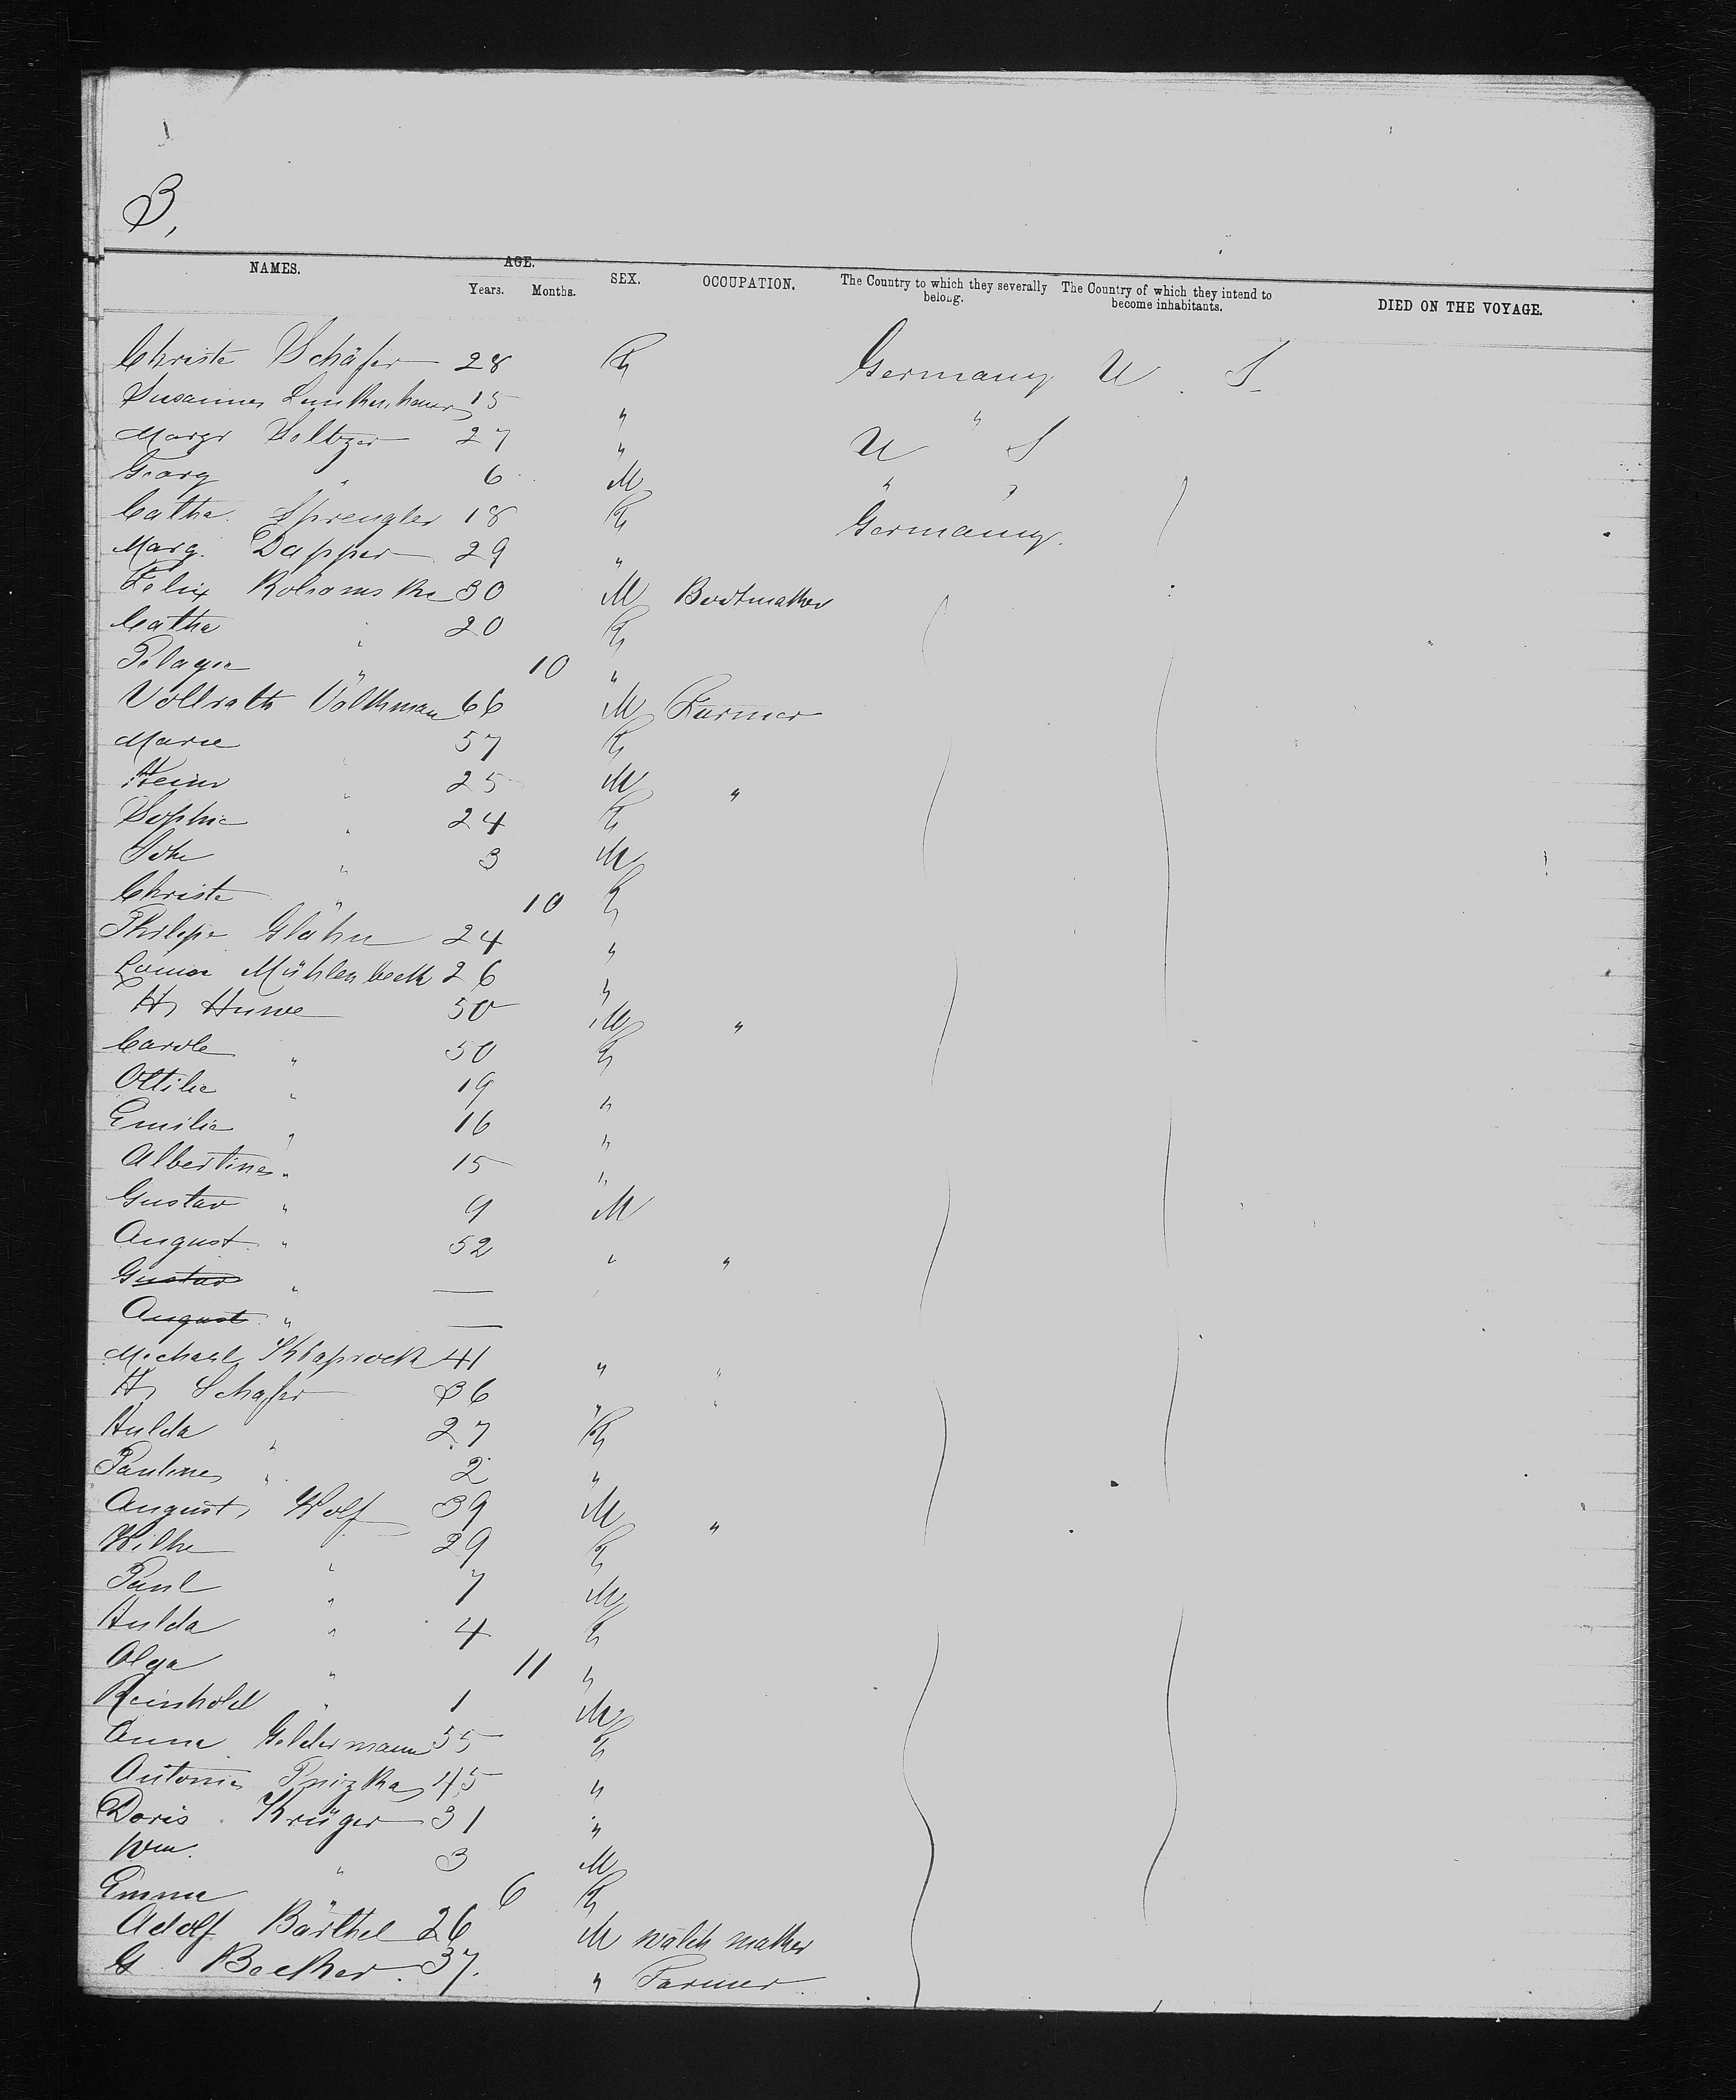 3,
NAMES. AGE. Years. Months. SEX. OCCUPATION. The Country to which they severally belong. The Country of which they intend to become inhabitants. DIED ON THE VOYAGE.
Christe Schäfer 28 F Germany U S
Susanna 15 " "
Margr Seltzer 27 " U S
Georg " 6 M " "
Catha. Sprengler 18 F Germany.
Marg. Dapper 29 "
Felix 30 M Bootmaker
Catha " 20 F
Pelagia " 10 "
Vollrath Völkman 66 M Farmer
Marie " 57 F
Heinr " 25 M "
Sophie " 24 F
Joh " 3 M
Christe " 10 F
Philipp Glähn 24 "
Louise Mühlenbeck 26 "
H Huwe 50 M "
Carole " 50 F
Ottilie " 19 "
Emilie " 16 "
Albertine " 15 "
Gustav " 9 M
August " 52 " "
Gustav " —
August " —
Michael 41 " "
H Schafer 36 " "
Hulda " 27 F
Pauline " 2 "
August Wolf 39 M "
Wilhe " 29 F
Paul " 7 M
Hulda " 4 F
Olga " 11 "
Reinhold " 1 M
Anna Geldermann 55 F
Antonie 45 "
Doris Krüger 31 "
Wm. " 3 M
Emma " 6 F
Adolf Bärthel 26 M watch maker
G Becker. 37. " Farmer